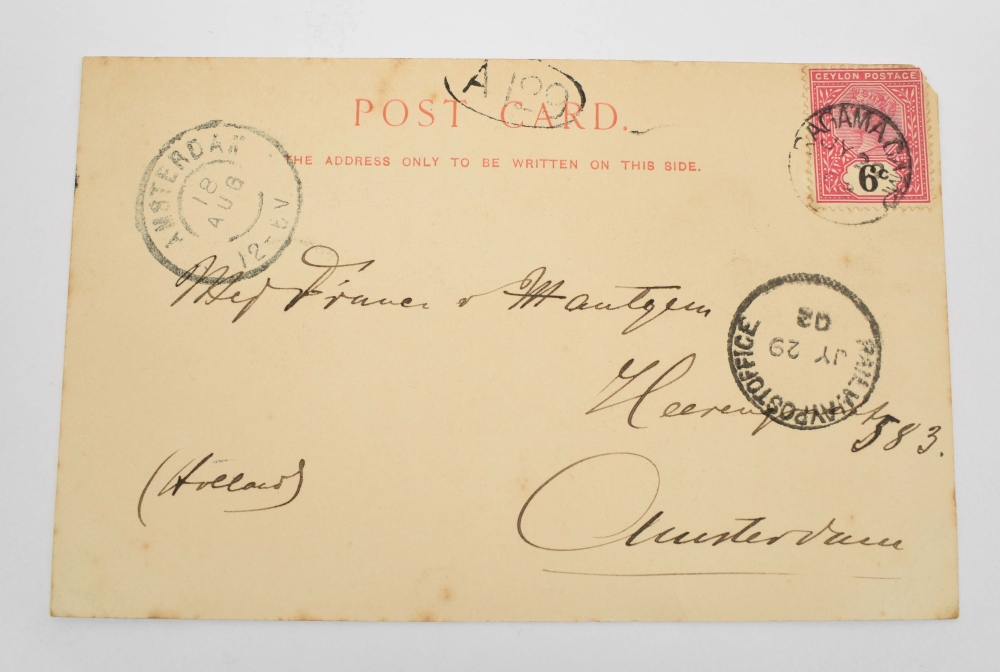 A 100
POST CARD.
THE ADDRESS ONLY TO BE WRITTEN ON THIS SIDE.
CEYLON POSTAGE
6
RAGAMA CAMP
AMSTERDAM
18
AUG
12-6V
Mej France v Mantgem
RAILWAY POST OFFICE
JY 29
02
583.
(Holland)
Amsterdam